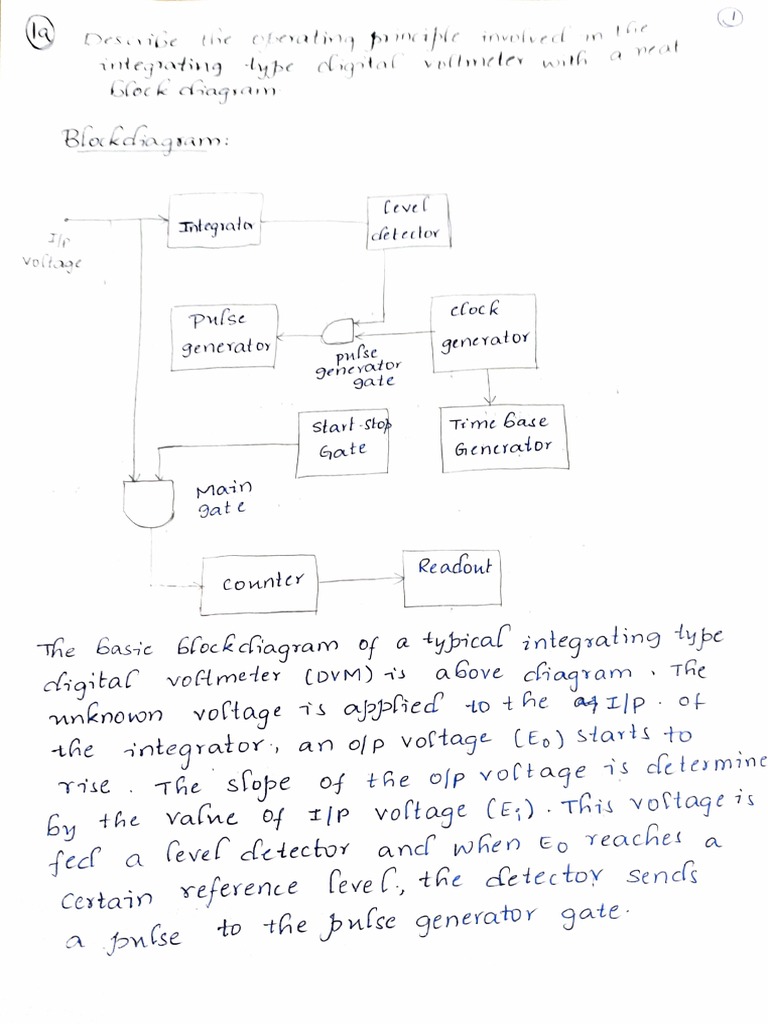 1
1a Describe the operating principle involved in the
integrating type digital voltmeter with a neat
block diagram
Blockdiagram:
I/P
voltage
Integrator
Level
detector
Pulse
generator
pulse
generator
gate
clock
generator
Start-stop
Gate
Time base
Generator
Main
gate
counter
Readout
The basic blockdiagram of a typical integrating type
digital voltmeter (DVM) is above diagram. The
unknown voltage is applied to the I/P. of
the integrator, an o/p voltage (Eo) starts to
rise. The slope of the o/p voltage is determine
by the value of I/P voltage (Ei). This voltage is
fed a level detector and when Eo reaches a
certain reference level, the detector sends
a pulse to the pulse generator gate.